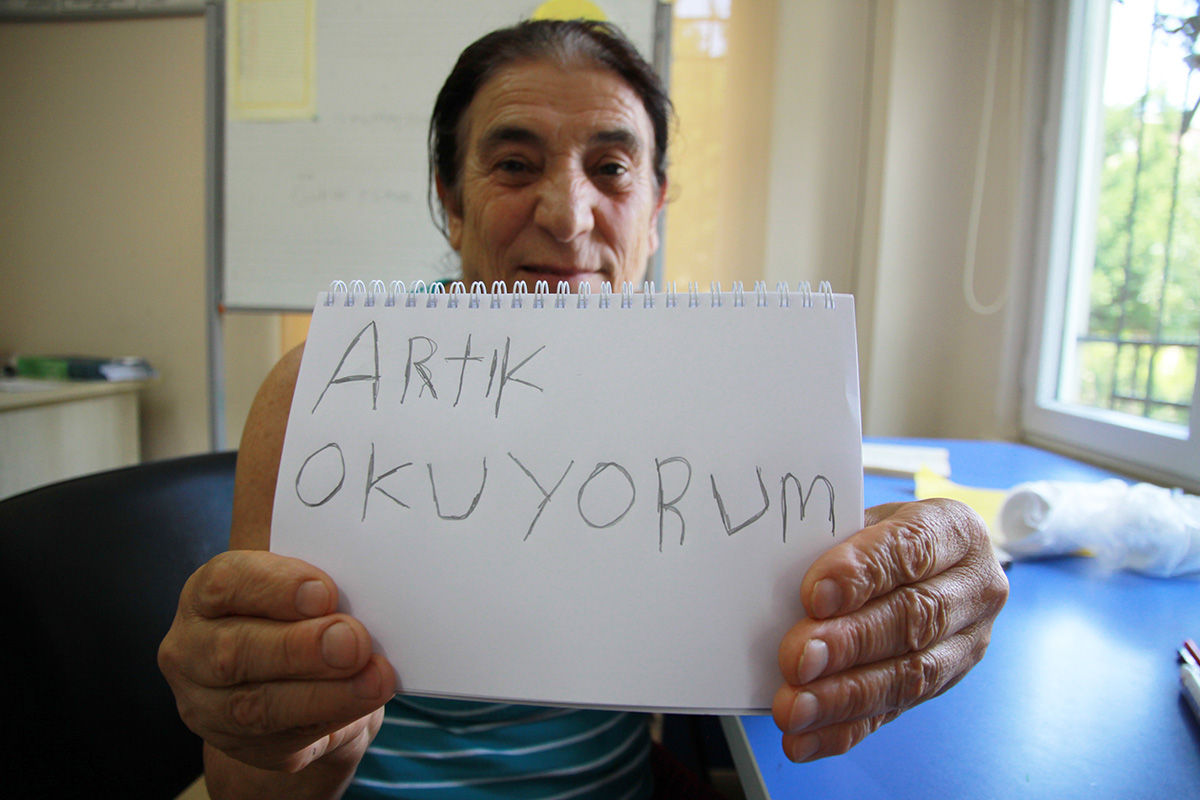 ARTIK
OKUYORUM